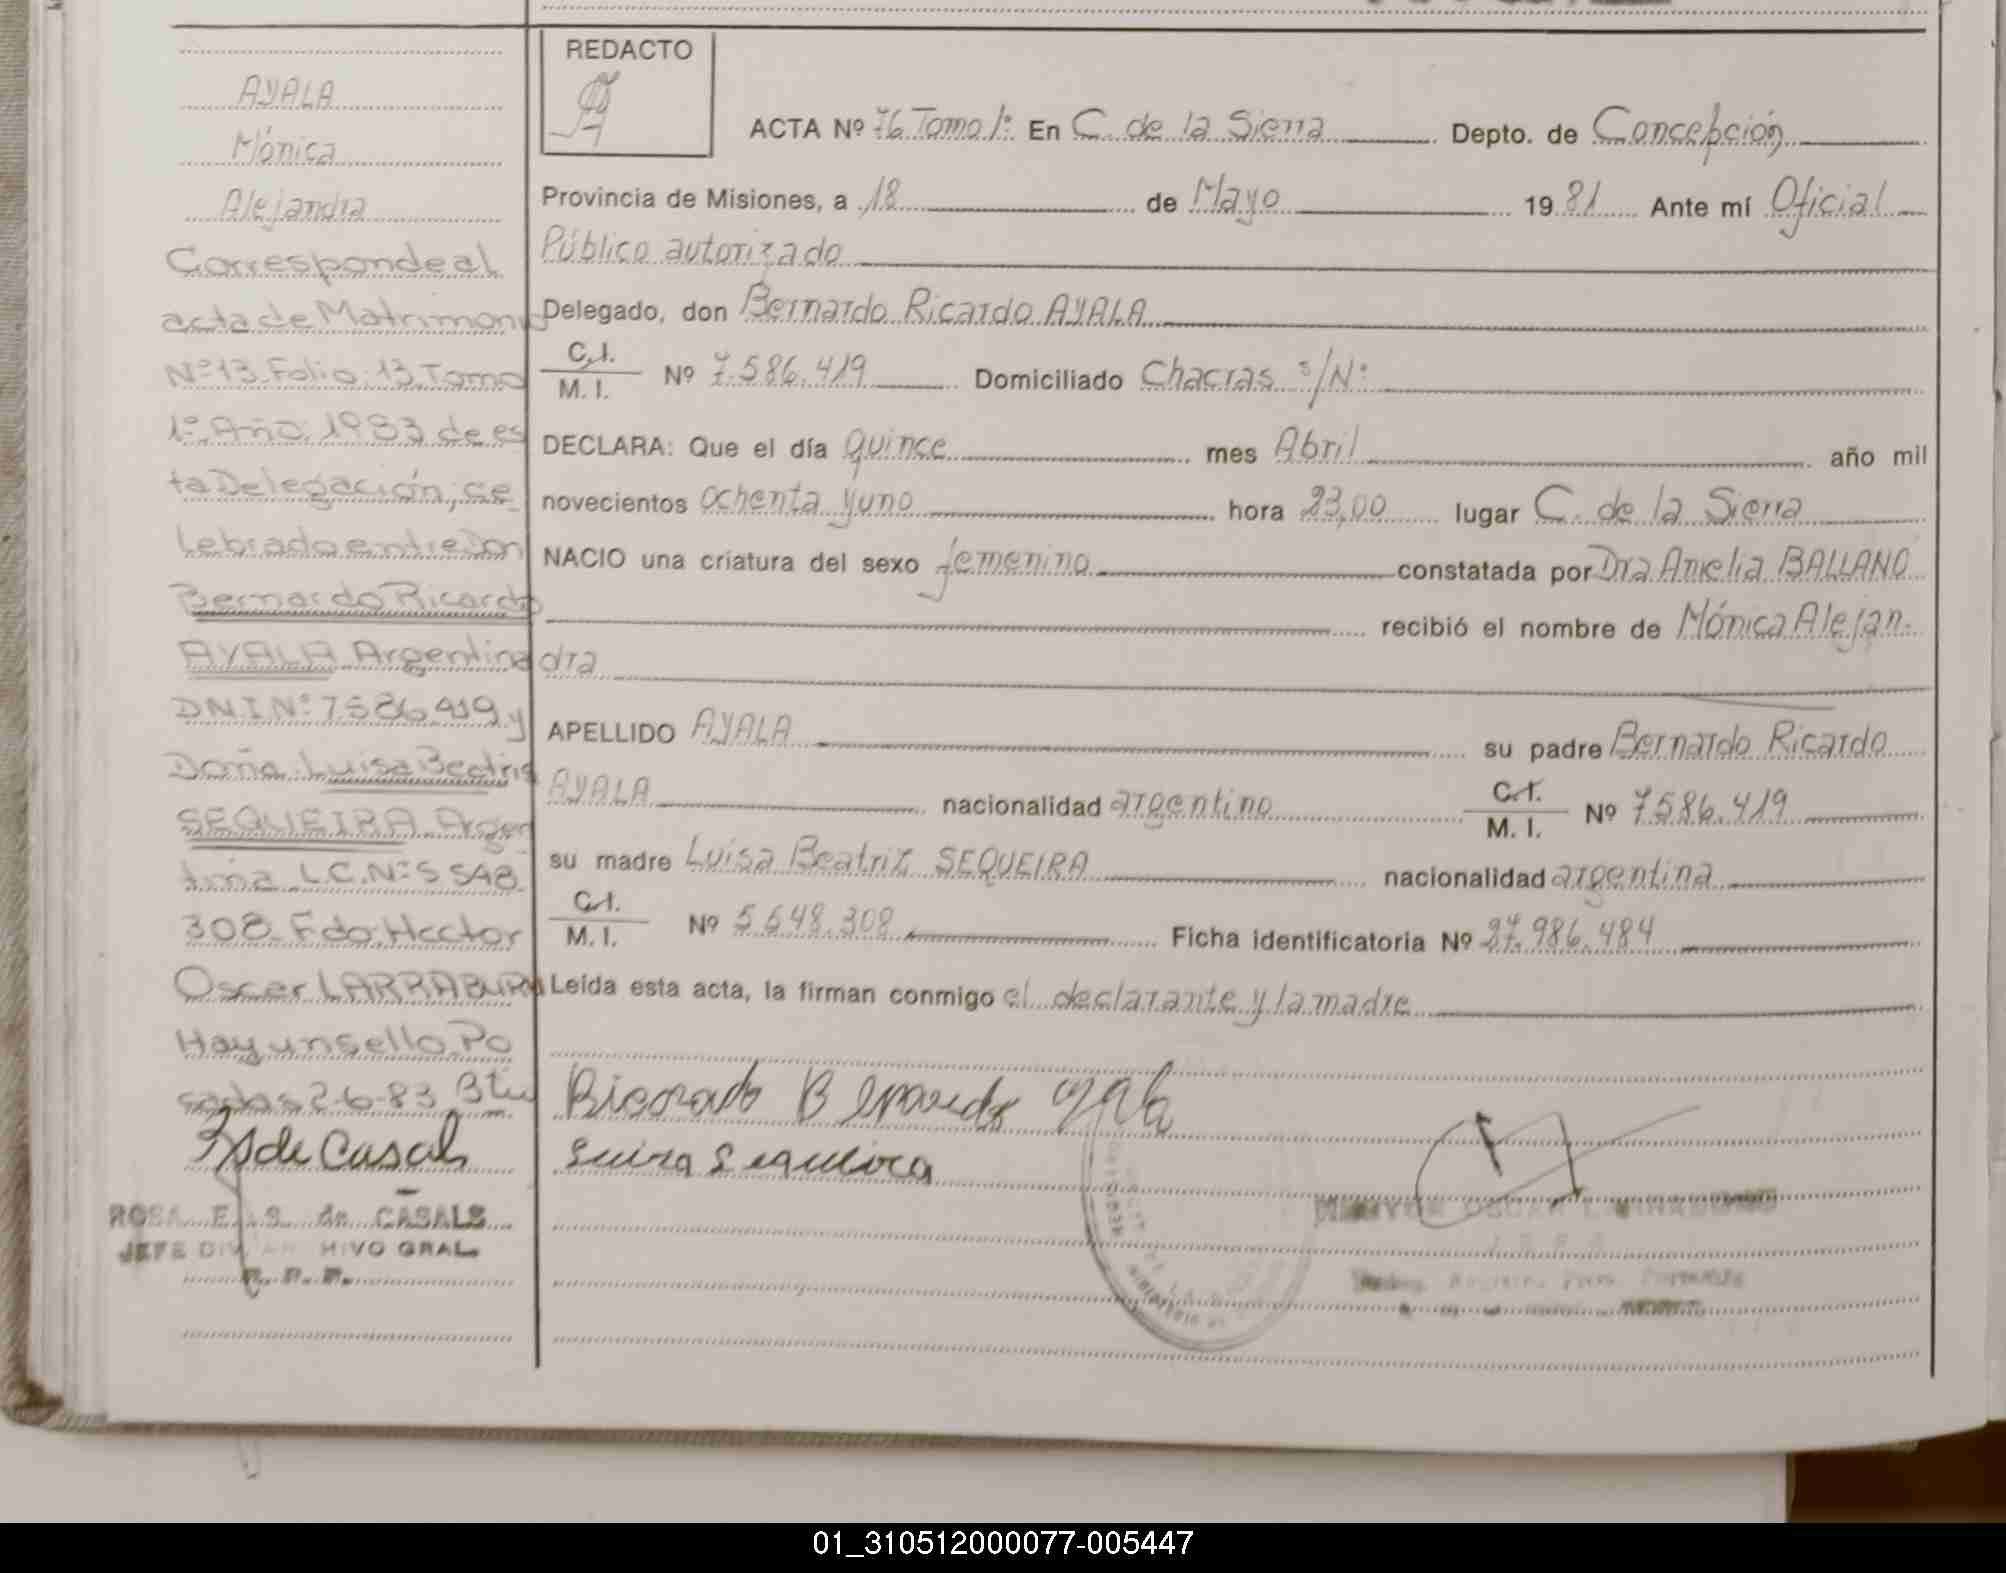 AYALA
Mónica
Alejandra
Corresponde al
acta de Matrimonio
Nº 13 Folio 13 Tomo
1º Año 1983 de es
ta Delegación, ce
lebrado entre Don
Bernardo Ricardo
AYALA Argentino
DNI Nº 7586419 y
Doña Luisa Beatris
SEQUEIRA Argen
tina L.C. Nº 5 548
308 Fdo. Hector
Oscar LARRABURU
Hay un sello. Po
sadas 2-6-83
de Casals
ROSA E. S. de CASALS
JEFE DIV. ARCHIVO GRAL.
R. P. P.
REDACTO
ACTA Nº 76 Tomo 1º En C. de la Sierra Depto. de Concepción
Provincia de Misiones, a 18 de Mayo 1981 Ante mí Oficial
Público autorizado
Delegado, don Bernardo Ricardo AYALA
C.I.
M. I. Nº 7.586.419 Domiciliado Chacras s/Nº
DECLARA: Que el día quince mes Abril año mil
novecientos ochenta y uno hora 23,00 lugar C. de la Sierra
NACIO una criatura del sexo femenino constatada por Dra Amelia BALLANO
recibió el nombre de Mónica Alejan-
dra
APELLIDO AYALA su padre Bernardo Ricardo
AYALA nacionalidad argentino C.I.
M. I. Nº 7586.419
su madre Luisa Beatriz SEQUEIRA nacionalidad argentina
C.I.
M. I. Nº 5.548.308 Ficha identificatoria Nº 27.986.484
Leída esta acta, la firman conmigo el declarante y la madre
Bicorado Bernardo Ayala
Luisa Sequeira
01_310512000077-005447